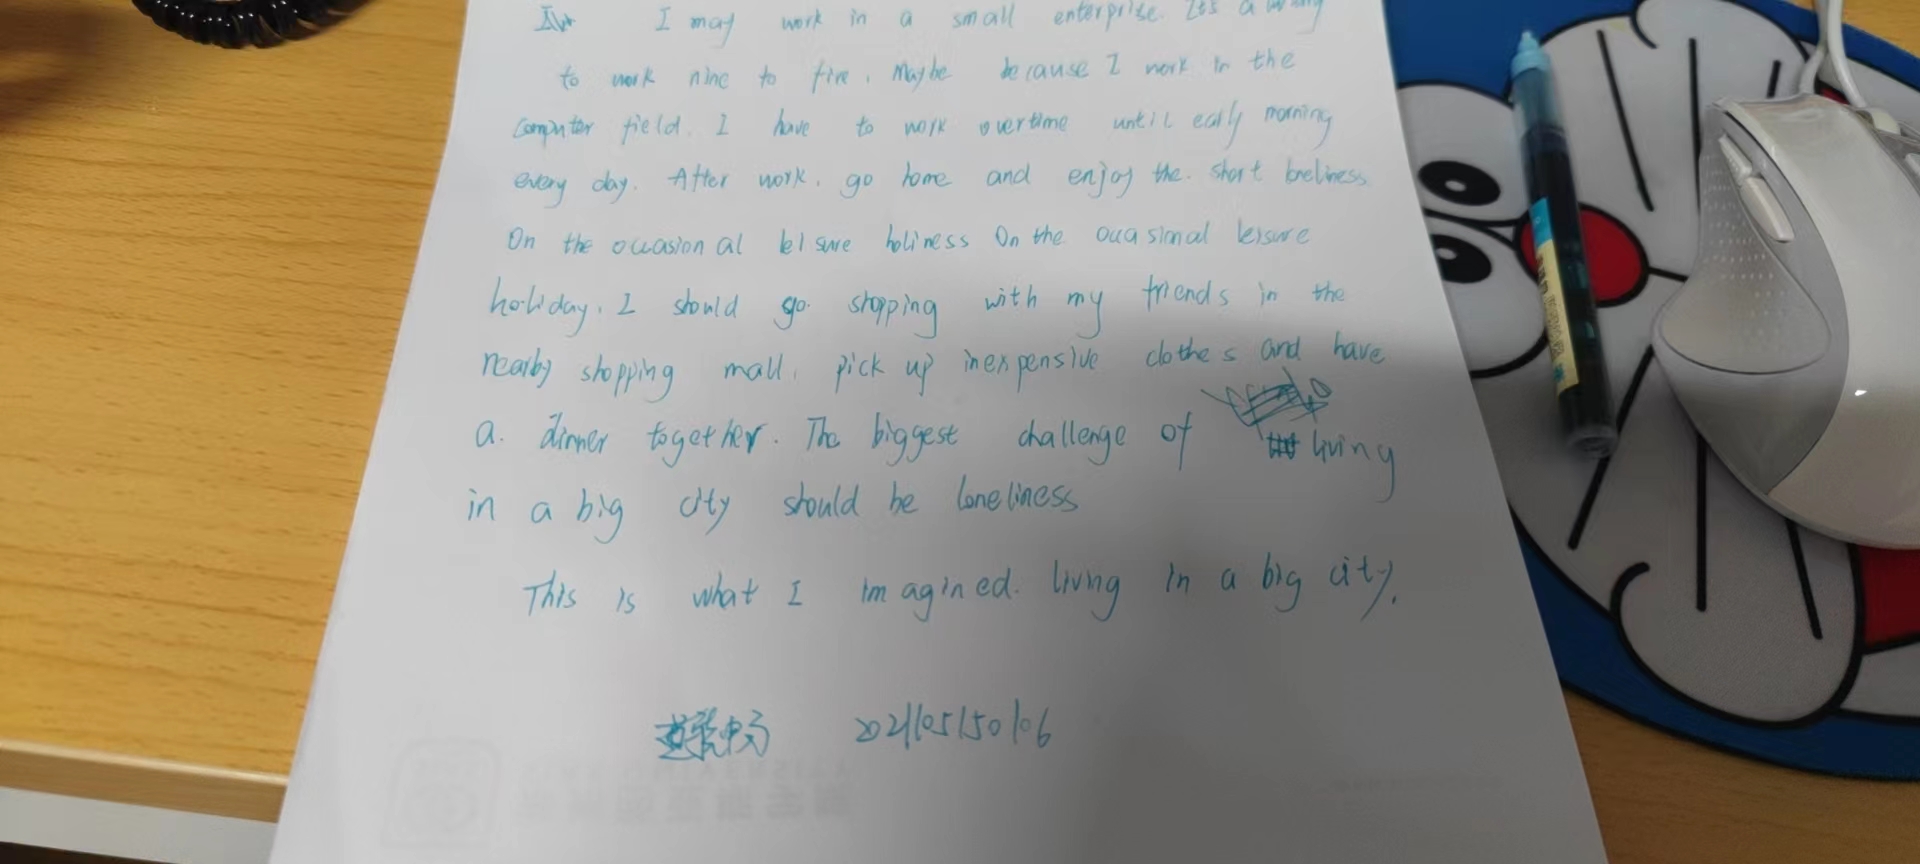 I may work in a small enterprise. It's a
to work nine to five. Maybe because I work in the
computer field. I have to work overtime until early morning
every day. After work, go home and enjoy the short loneliness.
On the occasional leisure holiness On the occasional leisure
holiday. I should go shopping with my friends in the
nearby shopping mall. pick up inexpensive clothes and have
a dinner together. The biggest challenge of living
in a big city should be loneliness
This is what I imagined living in a big city.
畅 2021105150106